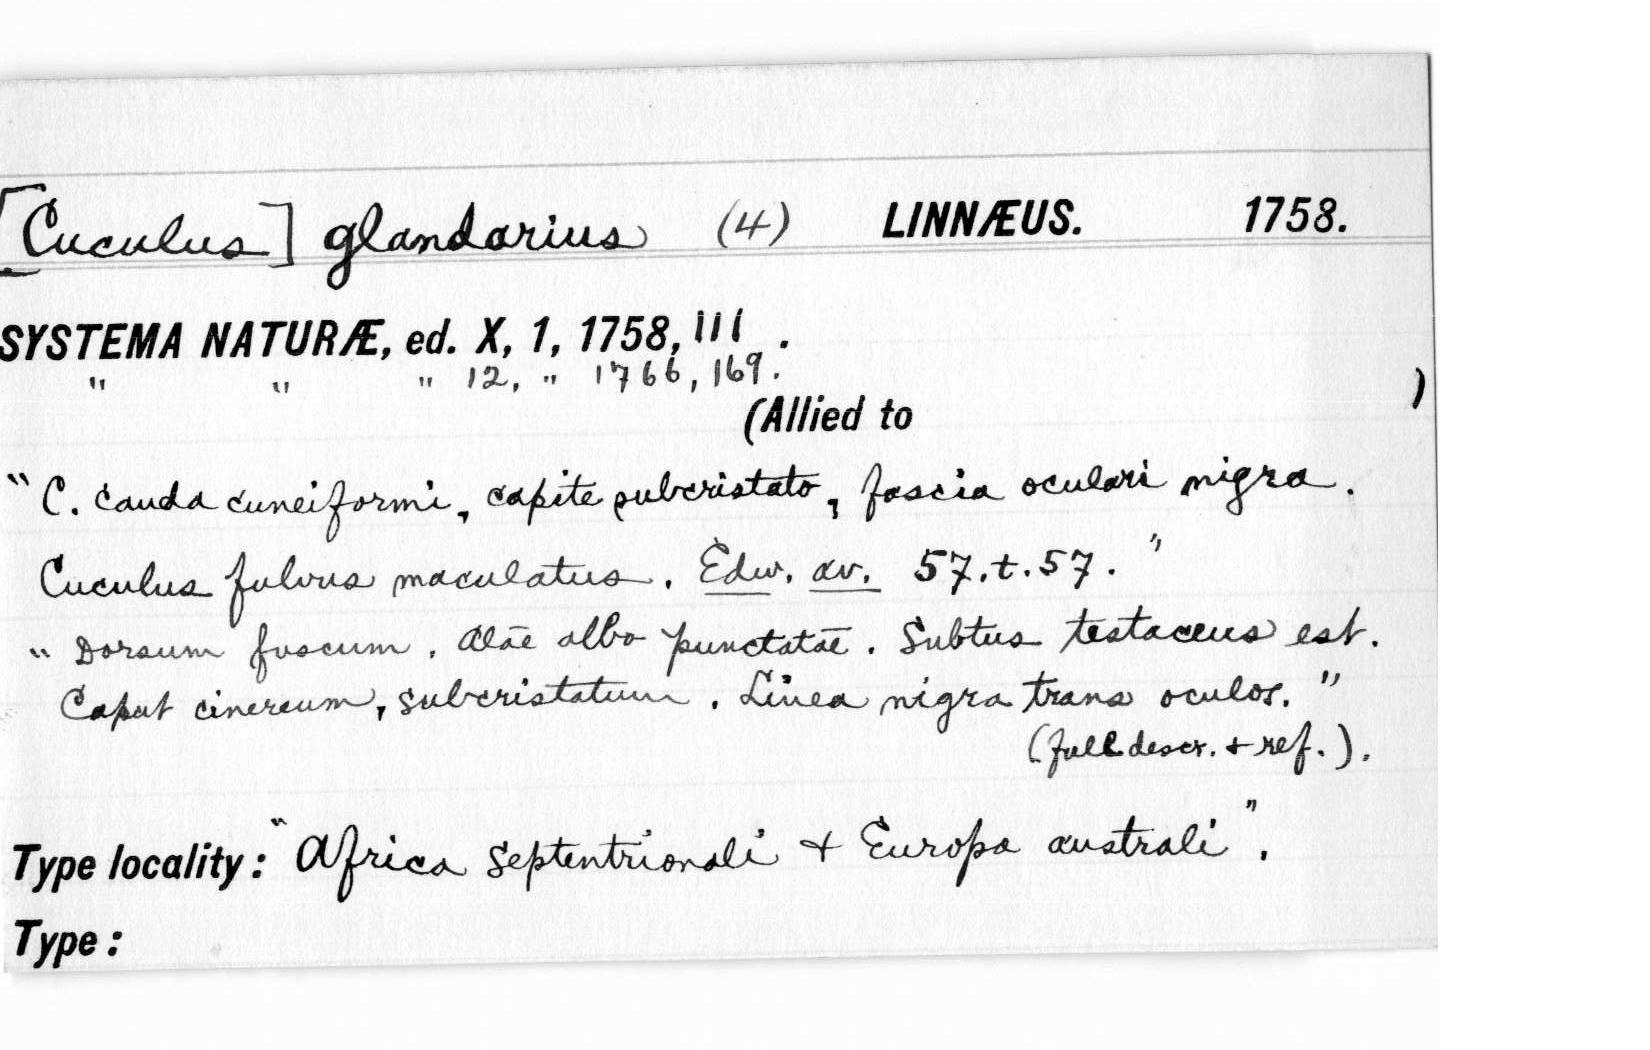 [Cuculus] glandarius (4) LINNÆUS. 1758.
SYSTEMA NATURÆ, ed. X, 1, 1758, 111 .
" " " 12, " 1766, 169.
(Allied to )
"C. cauda cuneiformi, capite subcristato, fascia oculari nigra.
Cuculus fulvus maculatus. Edw. av. 57.t.57."
"Dorsum fuscum. Alae albo punctatae. Subtus testaceus est.
Caput cinereum, subcristatum. Linea nigra trans oculos."
(full descr. + ref.).
Type locality: "Africa septentrionali + Europa australi".
Type: